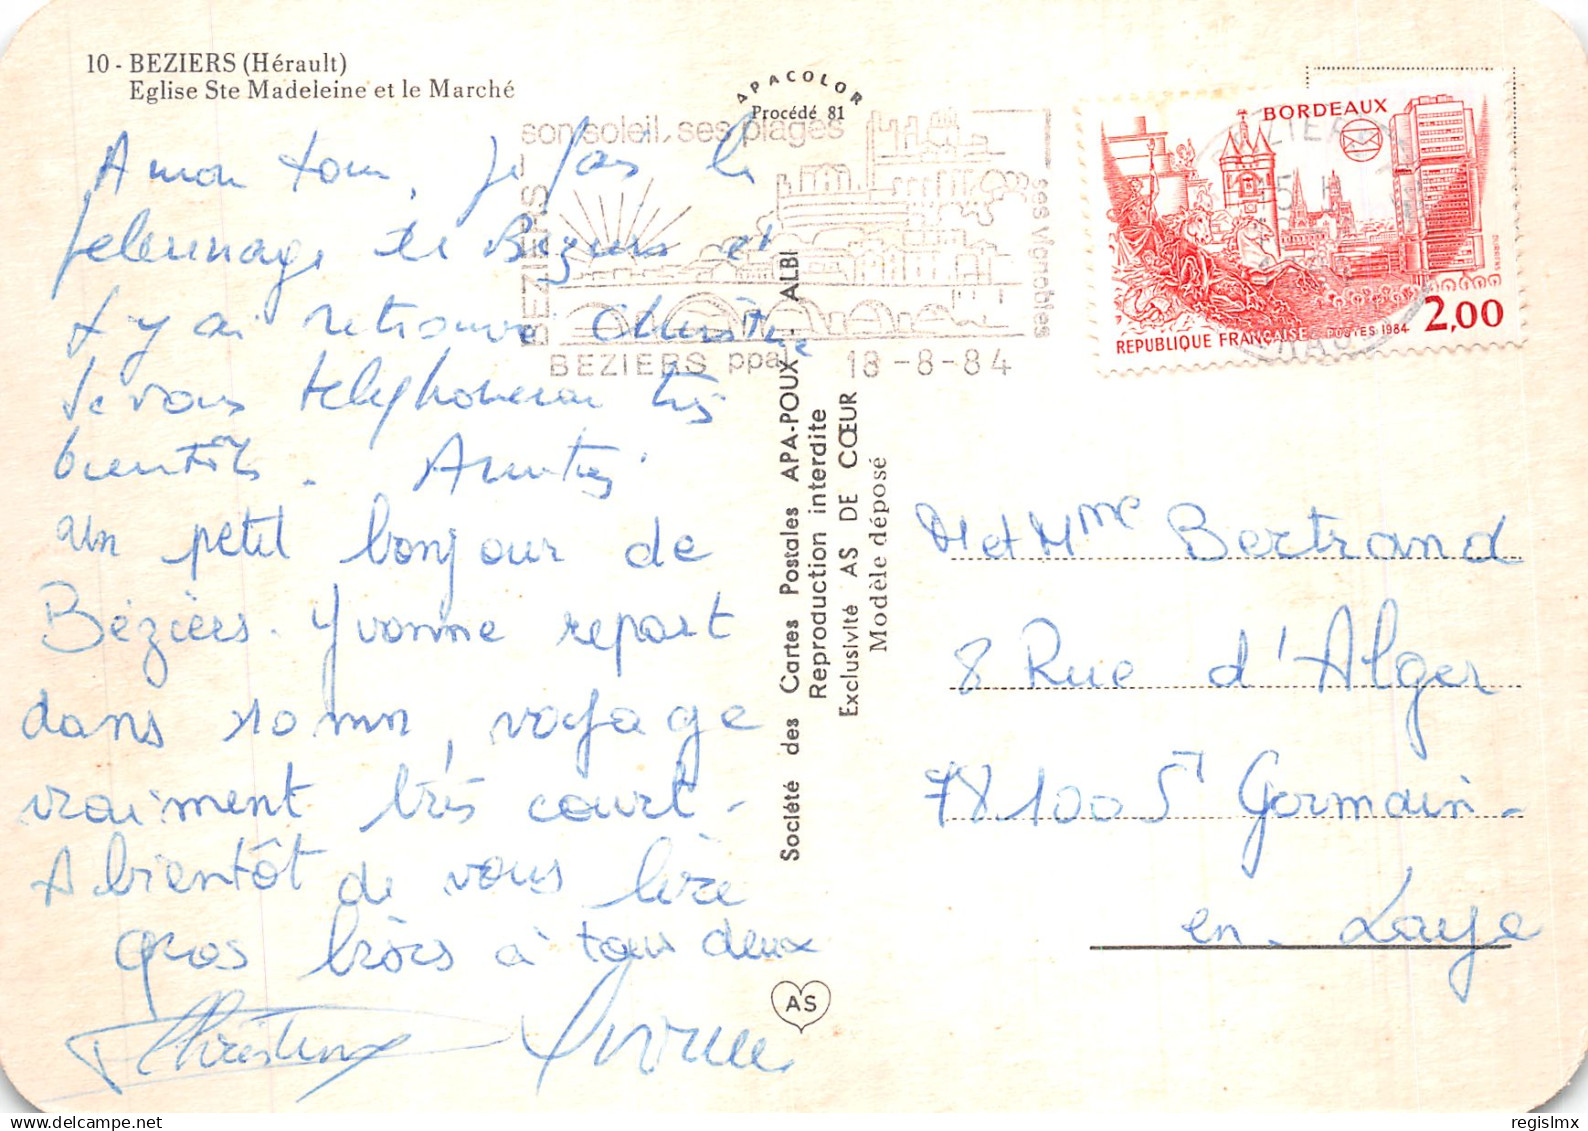 10 - BEZIERS (Hérault)
Eglise Ste Madeleine et le Marché
APACOLOR
Procédé 81
son soleil, ses plages
BEZIERS
ses vignobles
BEZIERS ppal 18-8-84
BORDEAUX
REPUBLIQUE FRANÇAISE POSTES 1984 2,00
A mon tour, je fais le
pelerinage de Béziers et
j'y ai retrouvé Christine
Je vous telephonerai très
bientôt. Amitiés
un petit bonjour de
Béziers. Yvonne repart
dans 10 mn, voyage
vraiment très court -
A bientôt de vous lire
gros kròcs à tous deux
Christine Yvonne
Société des Cartes Postales APA-POUX - ALBI
Reproduction interdite
Exclusivité AS DE CŒUR
Modèle déposé
AS
M et Mme Bertrand
8 Rue d'Alger
78100 St Germain-
en-Laye
regislmx